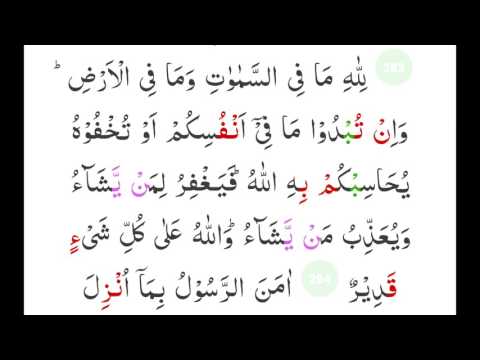 283 لِلّٰهِ مَا فِي السَّمٰوٰتِ وَمَا فِي الْاَرْضِ ؕ
وَاِنْ تُبْدُوْا مَا فِيْۤ اَنْفُسِكُمْ اَوْ تُخْفُوْهُ
يُحَاسِبْكُمْ بِهِ اللّٰهُ ؕ فَيَغْفِرُ لِمَنْ يَّشَآءُ
وَيُعَذِّبُ مَنْ يَّشَآءُ ؕ وَاللّٰهُ عَلٰى كُلِّ شَيْءٍ
قَدِيْرٌ 284 اٰمَنَ الرَّسُوْلُ بِمَاۤ اُنْزِلَ